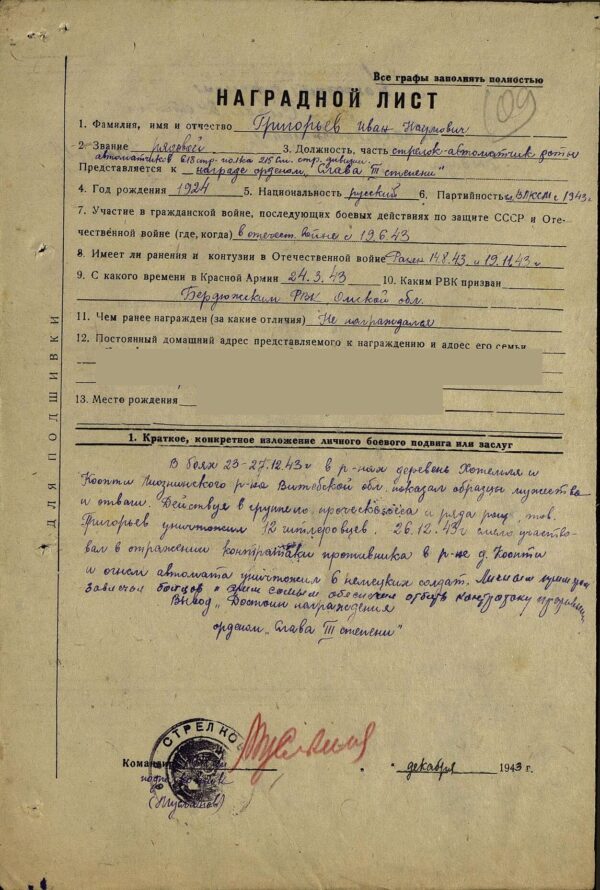 Все графы заполнять полностью
109
НАГРАДНОЙ ЛИСТ
1. Фамилия, имя и отчество Григорьев Иван Наумович
2. Звание рядовой 3. Должность, часть стрелок-автоматчик роты
автоматчиков 618 стр. полка 215 см. стр. дивизии.
Представляется к награде орденом „Слава III степени"
4. Год рождения 1924 5. Национальность русский 6. Партийность чл. ВЛКСМ с 1943 г
7. Участие в гражданской войне, последующих боевых действиях по защите СССР и Оте-
чественной войне (где, когда) в отечест. войне с 19.6.43
8. Имеет ли ранения и контузии в Отечественной войне Ранен 14.8.43 и 19.11.43 г
9. С какого времени в Красной Армии 24.3.43 10. Каким РВК призван
Бердюжским РВК Омской обл.
11. Чем ранее награжден (за какие отличия) Не награждался
12. Постоянный домашний адрес представляемого к награждению и адрес его семьи
13. Место рождения
ДЛЯ ПОДШИВКИ
1. Краткое, конкретное изложение личного боевого подвига или заслуг
В боях 23-27.12.43 г в р-нах деревень Хотемля и
Коопти Лиознинского р-на Витебской обл. показал образцы мужества
и отваги. Действуя в группе по проческе леса и ряда рощ, тов.
Григорьев уничтожил 12 гитлеровцев. 26.12.43 г смело участво-
вал в отражении контратаки противника в р-не д. Коопти
и огнем автомата уничтожил 6 немецких солдат. Личным примером
завлекая бойцов и этим самым обеспечил отбить контратаку противника
Вывод „Достоин награждения
орденом „Слава III степени"
СТРЕЛКО
Команди
декабря 1943 г.